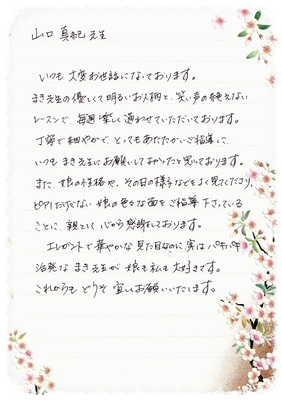 山口 真紀 先生
いつも大変お世話になっております。
まき先生の優しくて明るいお人柄と、笑い声の絶えない
レースンで毎週楽しく通わせていただいております。
丁寧で細やかで、とってもあたたかいご指導に、
いつもまき先生にお願いしてよかったと思っております。
また、娘の性格や、その日の様子などをよく見てくださり、
ピアノだけでない娘の色々な面をご指導下さっている
ことに、親として心から感謝をしております。
エレガントで華やかな見た目なのに、実はパキパキ
なまき先生が娘も私も大好きです。
これからもどうぞ宜しくお願いいたします。